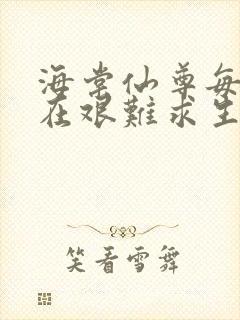 海棠仙尊每
在艰難求生
笑看雪舞